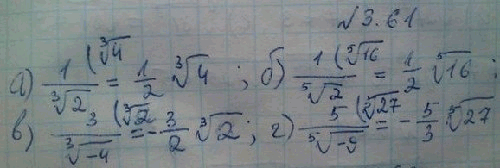 √3.61
а) 1/∛2 (∛4 = 1/2 ∛4 ; б) 1/⁵√2 (⁵√16 = 1/2 ⁵√16 ;
в) 3/∛-4 (∛2 = -3/2 ∛2 ; г) 5/⁵√-9 (⁵√27 = -5/3 ⁵√27